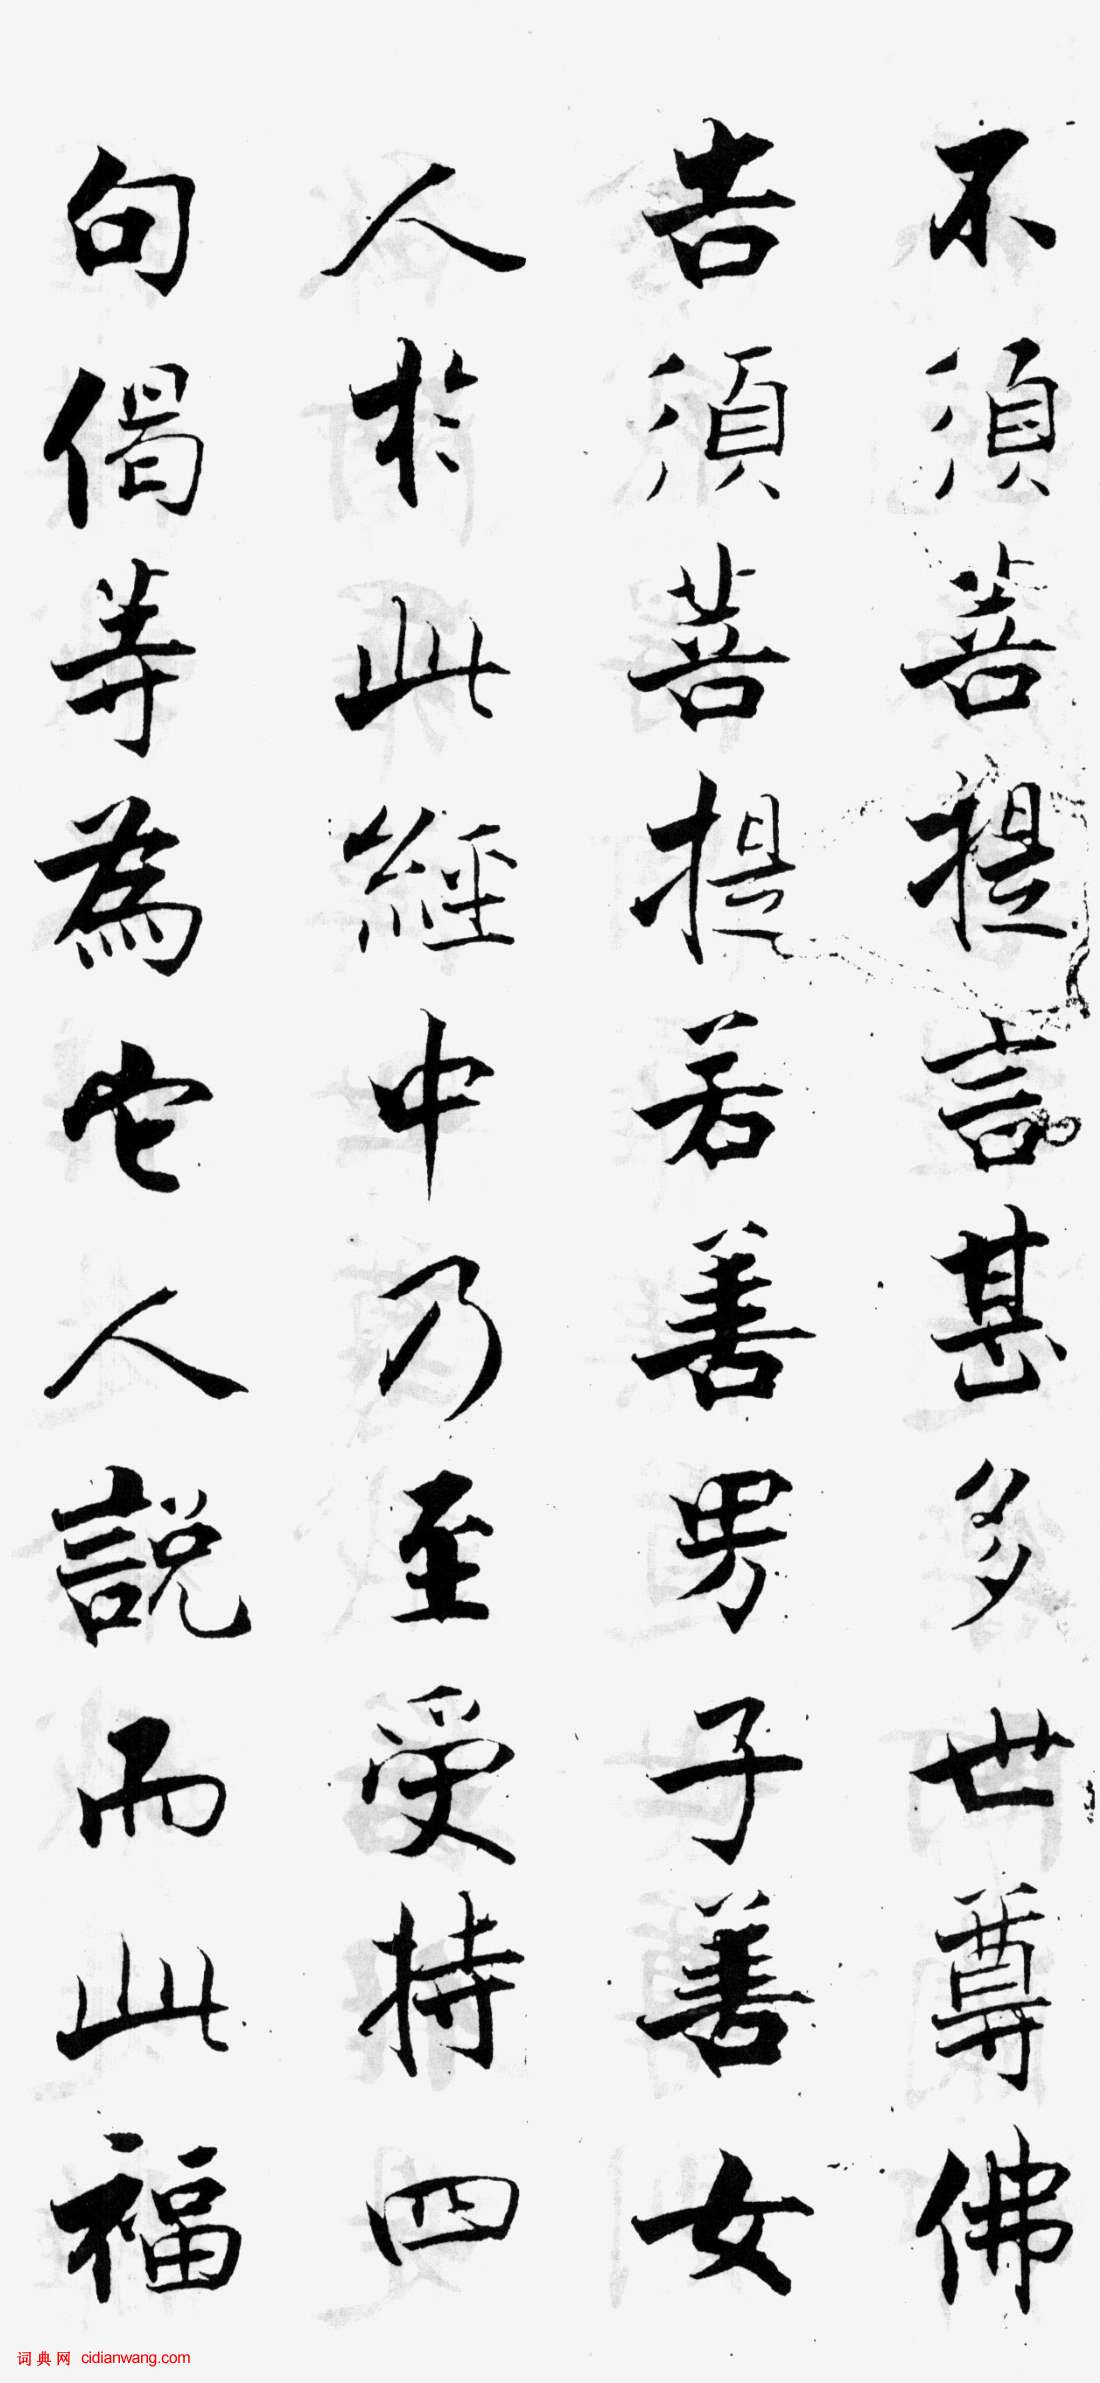 不須菩提言甚多世尊佛
告須菩提若善男子善女
人於此經中乃至受持四
句偈等為它人說而此福
词典网 cidianwang.com